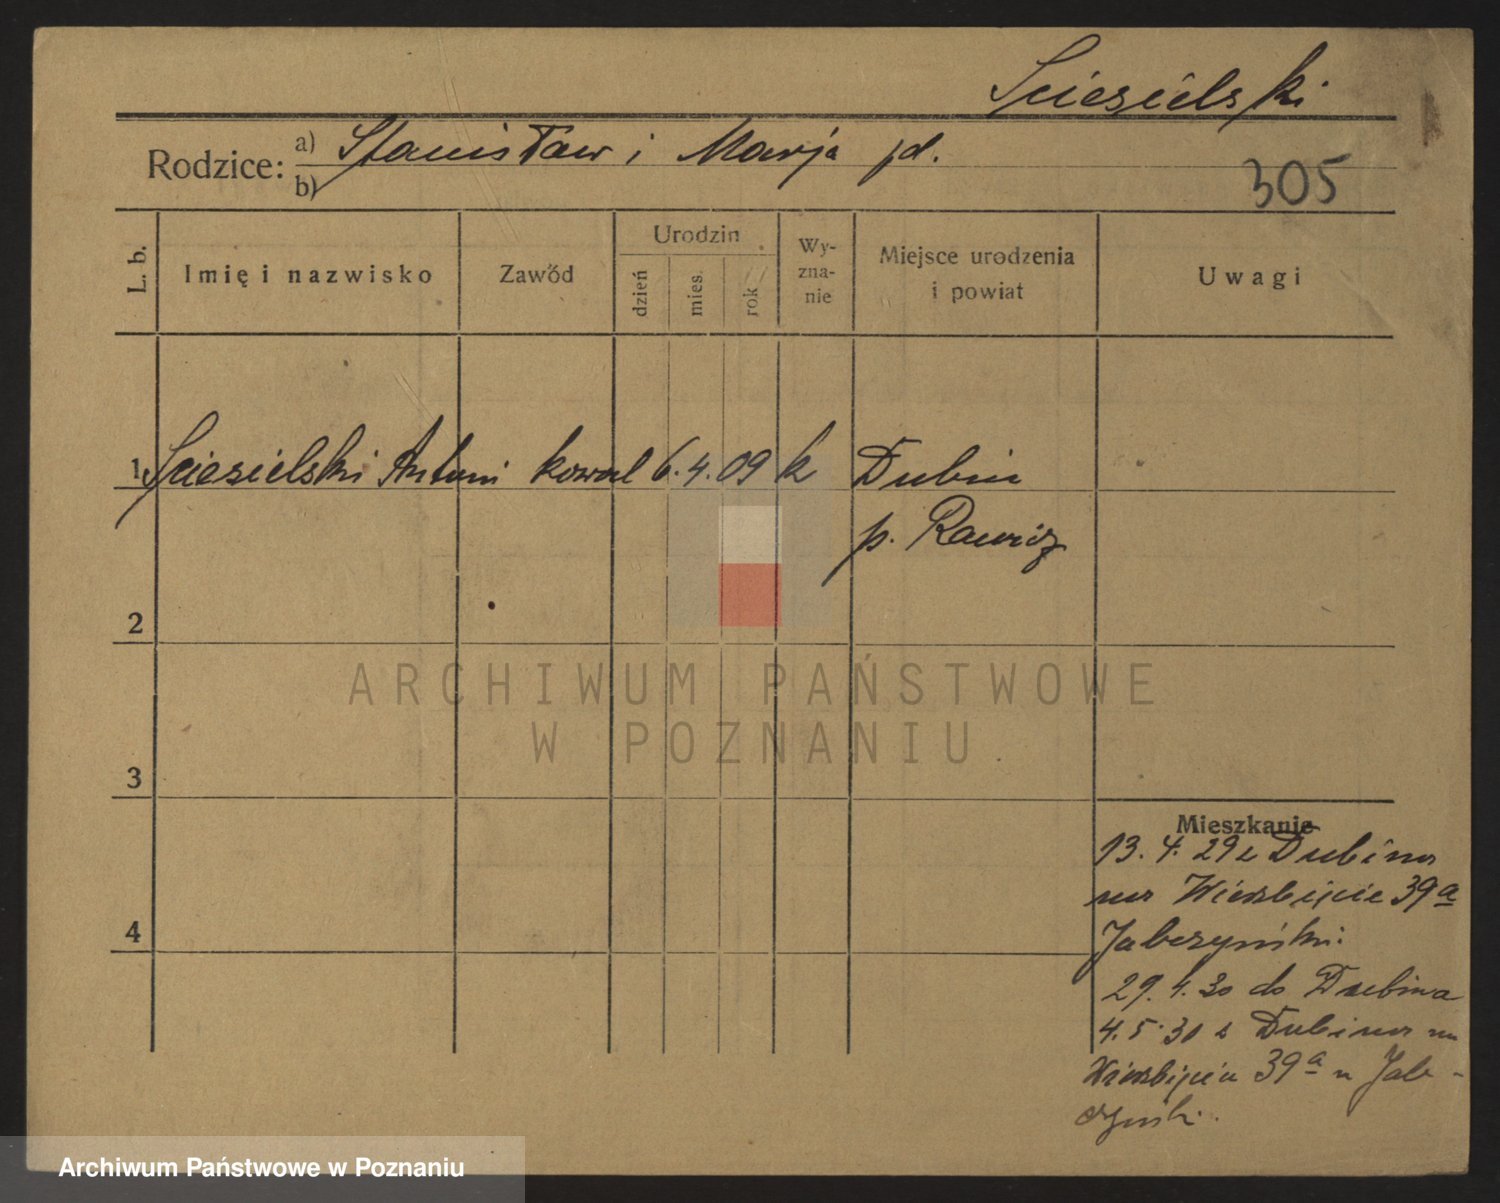 Sciesielski
Rodzice: a) Stanisław i Marja pd.
b)
305
L. b.
Imię i nazwisko
Zawód
Urodzin
dzień
mies.
rok
Wy-
zna-
nie
Miejsce urodzenia
i powiat
Uwagi
1 Sciesielski Antoni kowal 6. 4. 09 k Dubin
p. Rawicz
2
3
4
Mieszkanie
13. 4. 29 z Dubina
na Wierzbięcie 39a
Jabczyński.
29. 4. 30 do Dubina
4. 5. 30 z Dubina na
Wierzbięcie 39a u Jab-
czyński.
ARCHIWUM PAŃSTWOWE
W POZNANIU
Archiwum Państwowe w Poznaniu